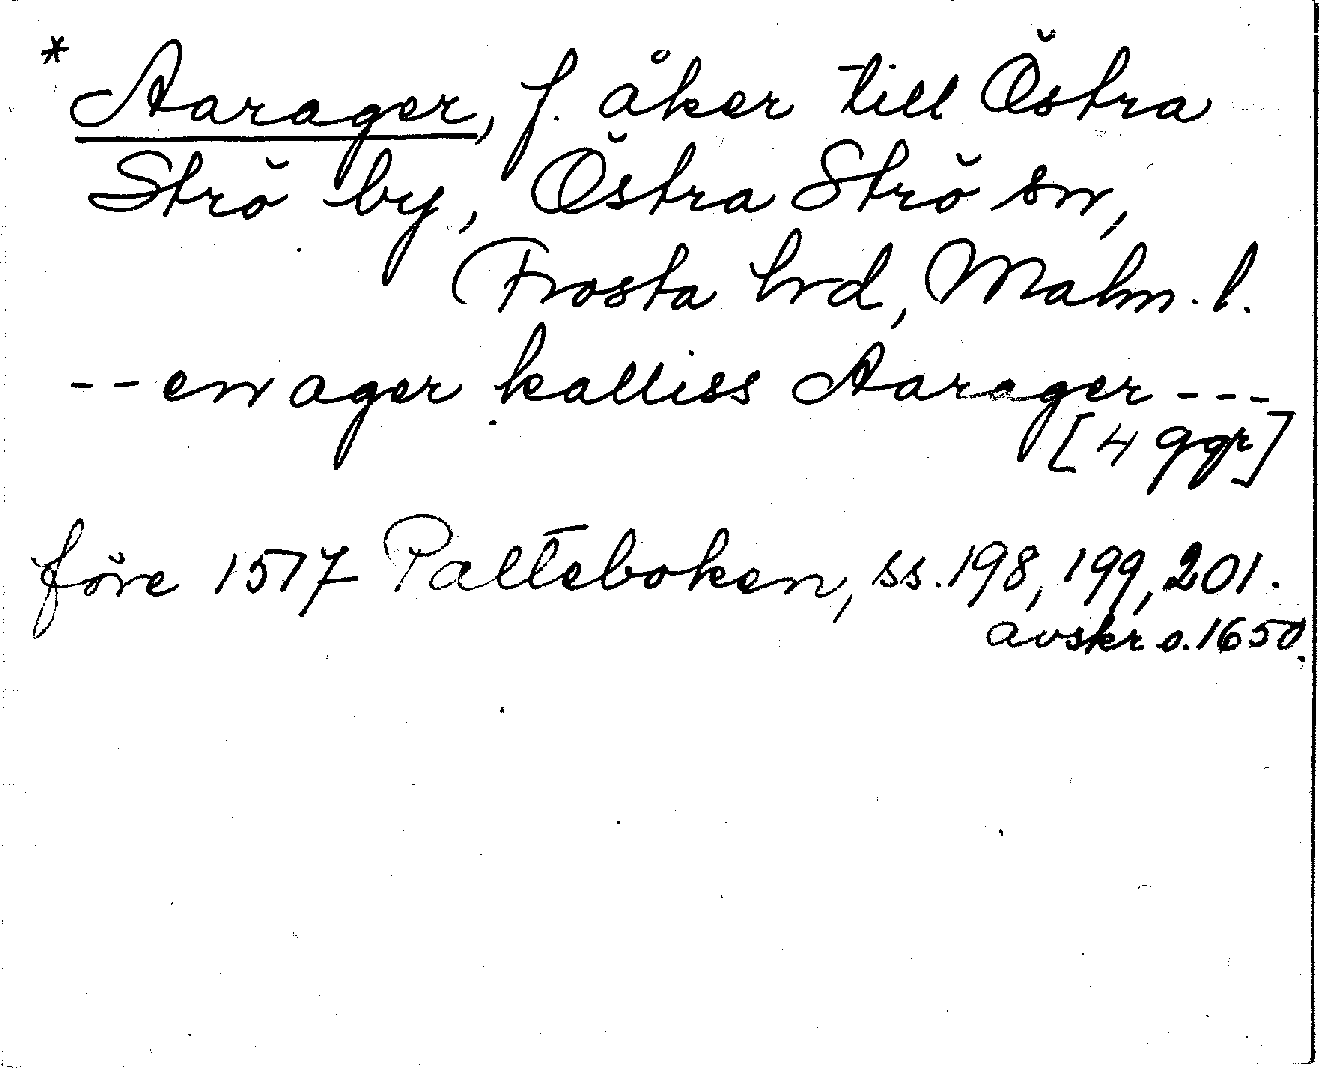 * Aarager, f. åker till Östra
Strö by, Östra Strö sn,
Frosta hrd, Malm. l.
-- en ager kalliss Aarager ---
[4 ggr]
före 1517 Palteboken, ss. 198, 199, 201.
avskr o. 1650.